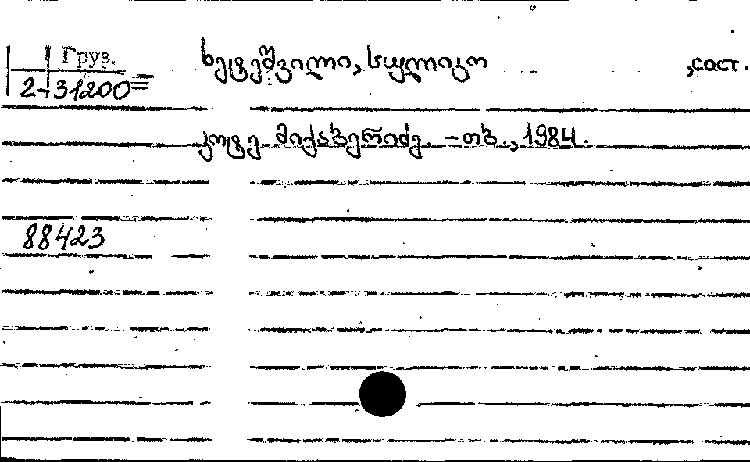 Груз.
2-31200=
ხეტეშვილი, სულიკო ,сост.
კოტე მიქაბერიძე. – თბ., 1984.
88423